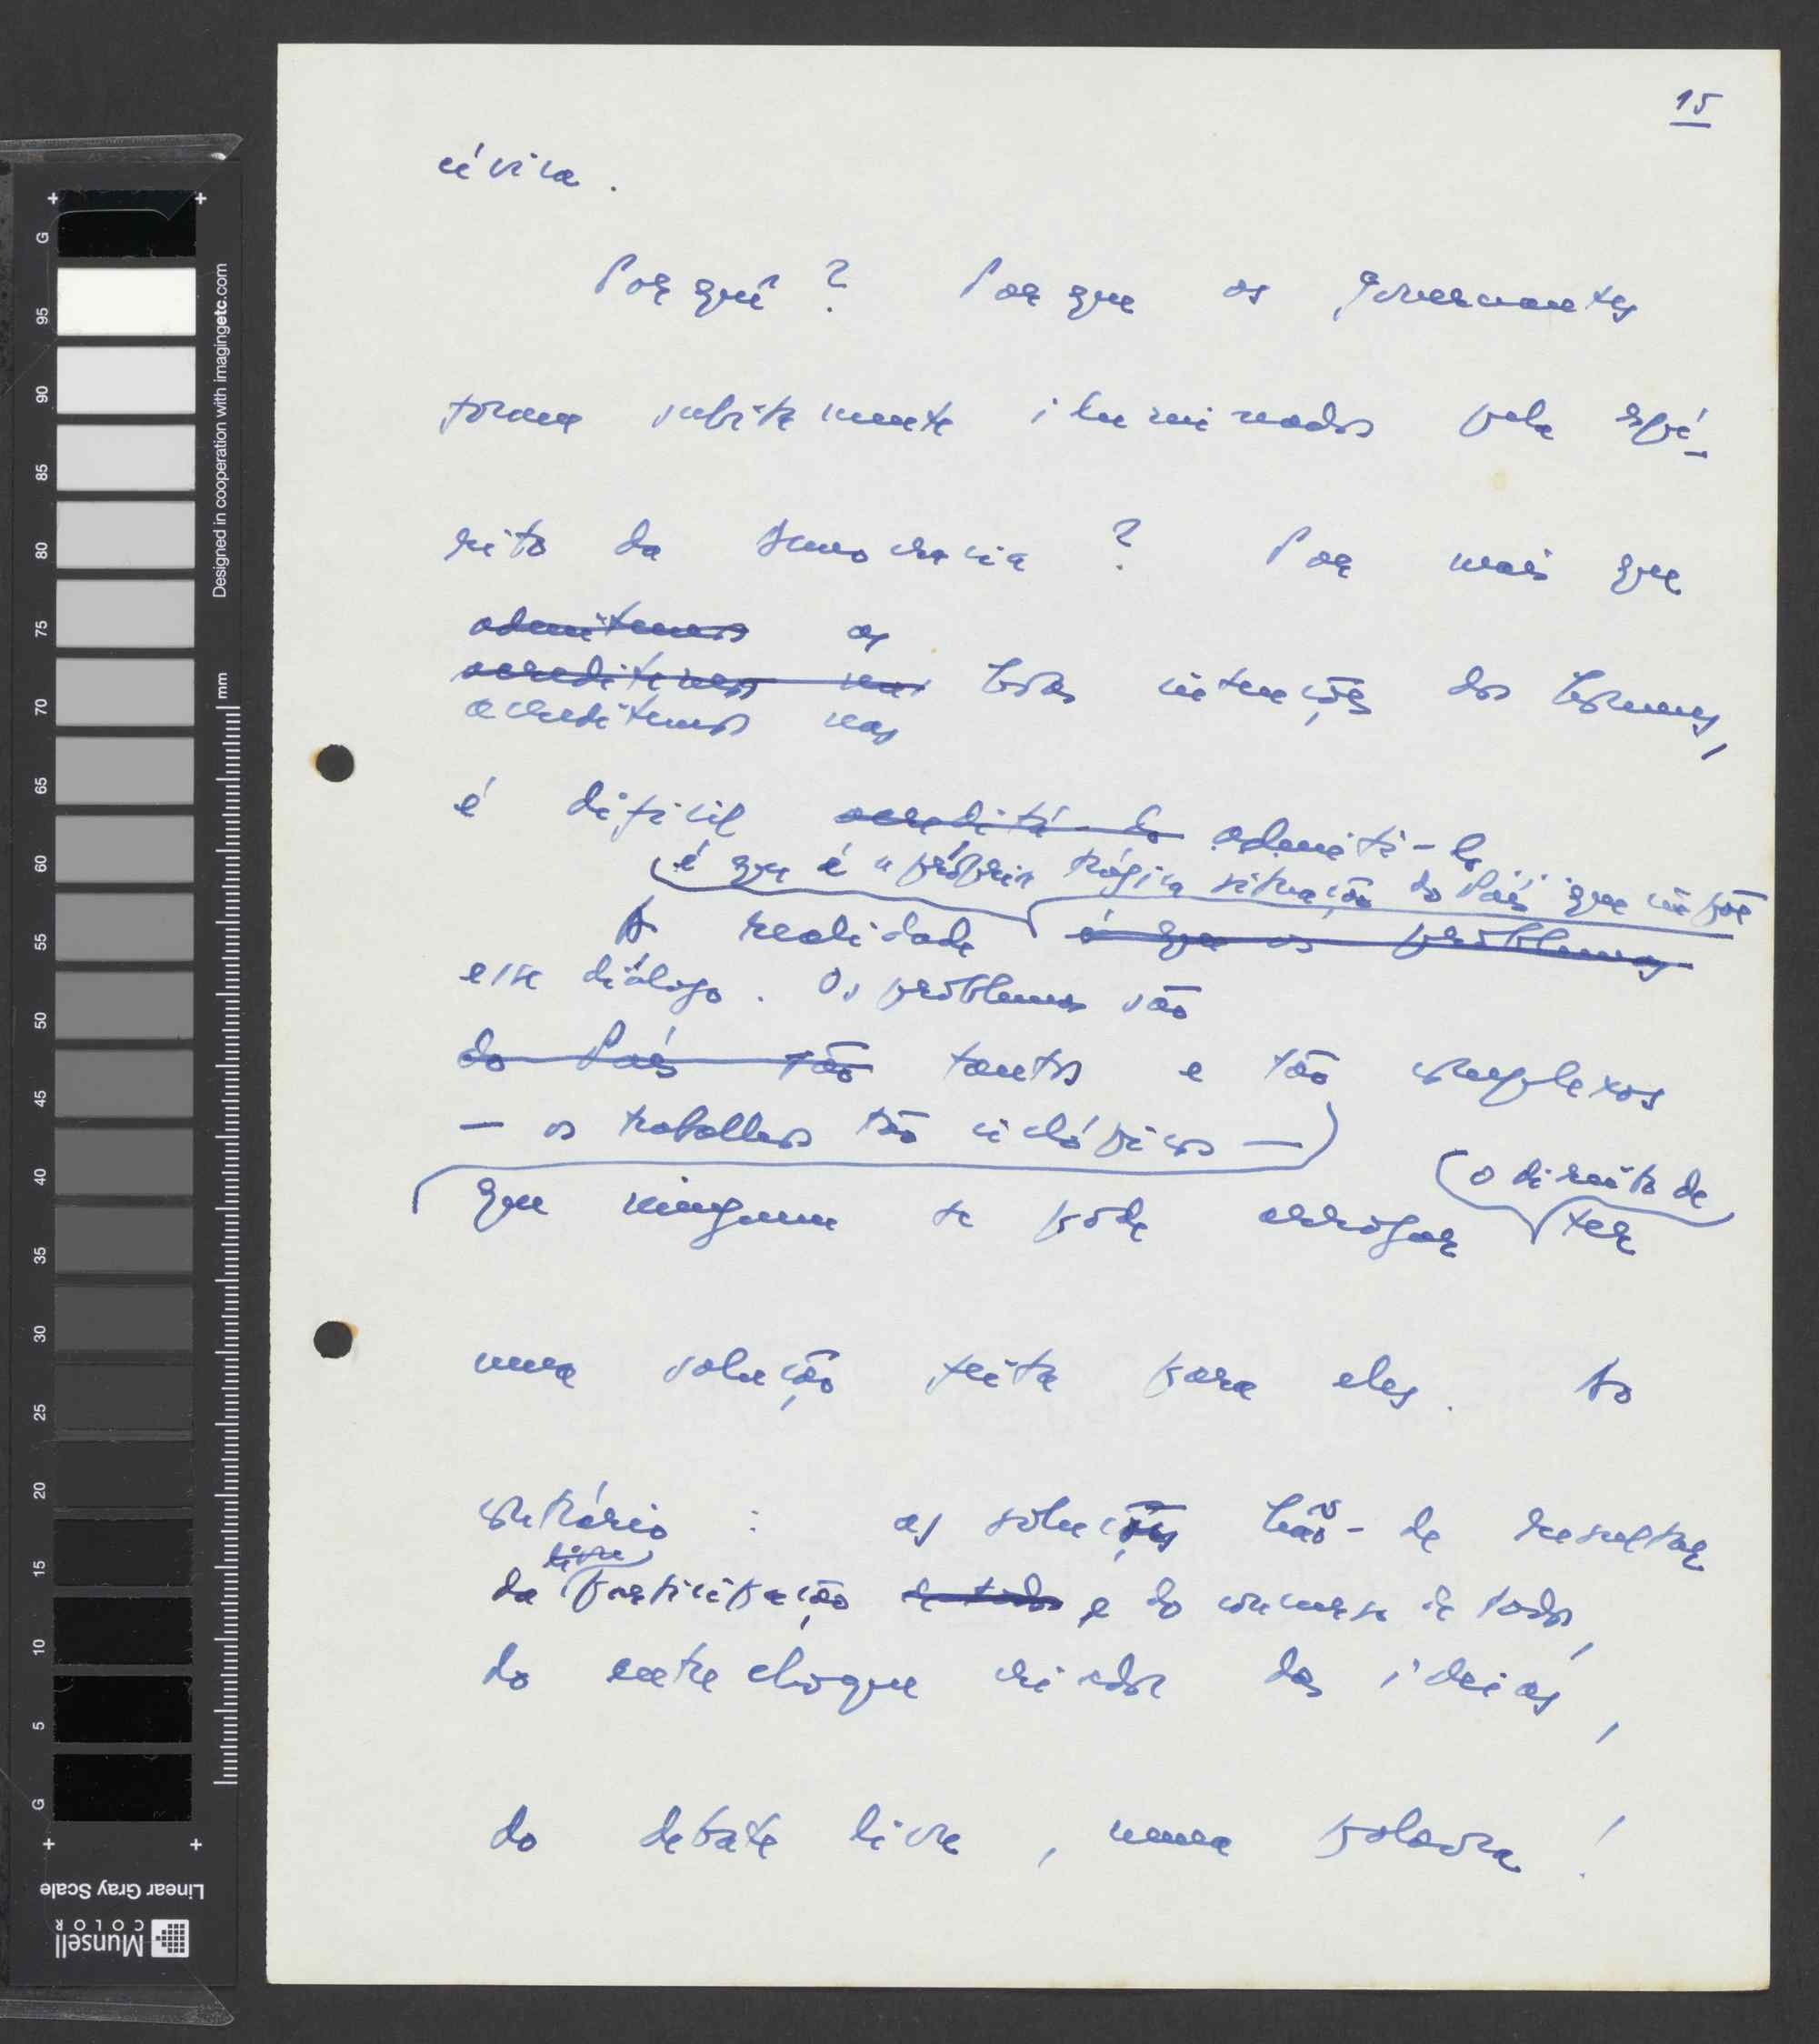 15
cívica.
Porquê? Porque os governantes
foram subitamente iluminados pelo espí-
rito da democracia? Por mais que
admitamos as
acreditemos nas boas intenções dos homens,
acreditemos nas
é difícil acreditá-lo admiti-lo
é que é a própria trágica situação do País que impõe
A realidade é que os problemas
esse diálogo. Os problemas são
do País são tantos e tão complexos
— os trabalhos tão ciclópicos —
o direito de
que ninguem se pode arrogar ter
uma solução feita para eles. Ao
contrário: as soluções hão-de resultar
livre
da participação de todos e do concurso de todos,
do entrechoque criador das ideias,
do debate livre, numa palavra!
Designed in cooperation with imagingetc.com
mm
G 95 90 85 80 75 70 65 60 55 50 45 40 35 30 25 20 15 10 5 G
Linear Gray Scale
Munsell
COLOR